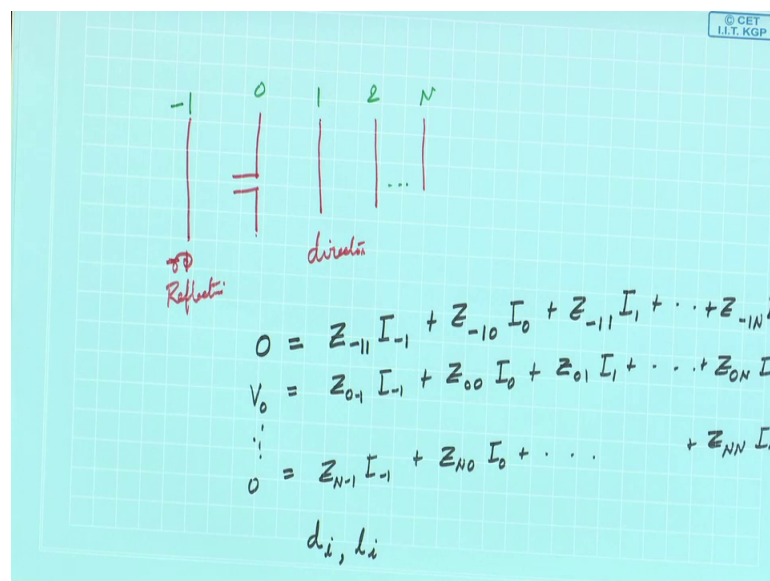 © CET
I.I.T. KGP
-1 0 1 2 N
...
Reflector
director
0 = Z₋₁₁ I₋₁ + Z₋₁₀ I₀ + Z₋₁₁ I₁ + ·· + Z₋₁N
V₀ = Z₀₋₁ I₋₁ + Z₀₀ I₀ + Z₀₁ I₁ + · · · + Z₀N I
⋮
0 = Z_N₋₁ I₋₁ + Z_N₀ I₀ + · · · + Z_NN I
dᵢ, lᵢ